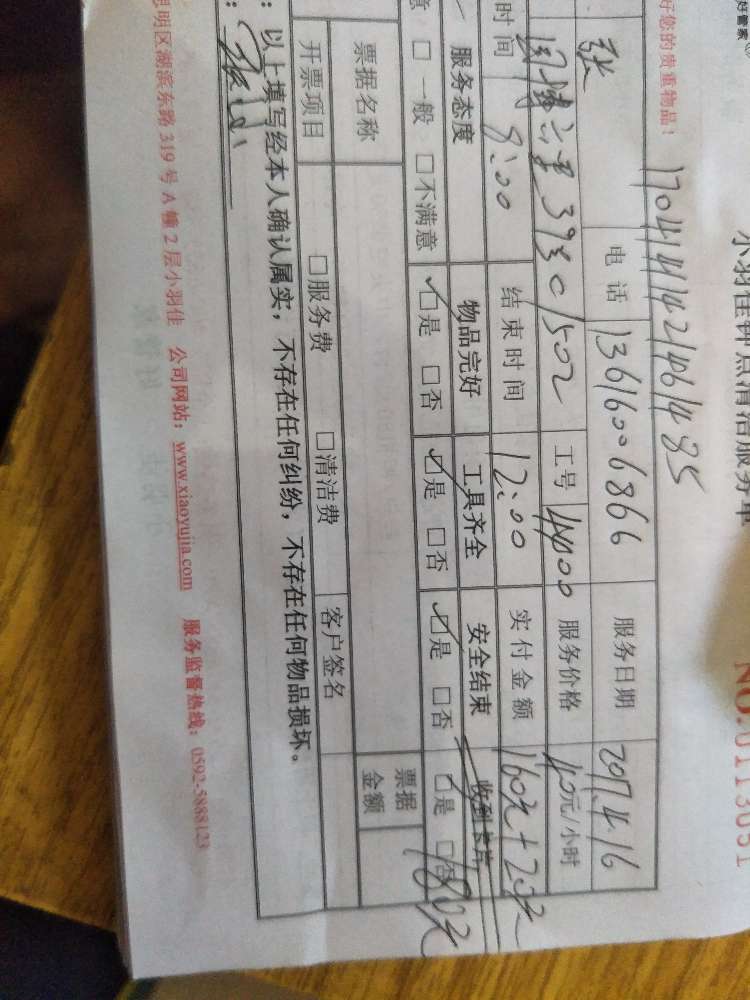 好管家
小羽佳钟点清洁服务单
NO.0113051
好您的贵重物品！
1704141421461485
张 电话 13616006866 服务日期 2017.4.16
393C1502 工号 4400 服务价格 40元/小时
时间 8:00 结束时间 12:00 实付金额 160元+20元
服务态度 物品完好 工具齐全 安全结束 收到卡片
意 □一般 □不满意 ☑是 □否 ☑是 □否 ☑是 □否 ☑是 □否
180元
票据名称 票据金额
开票项目 □服务费 □清洁费 客户签名
：以上填写经本人确认属实，不存在任何纠纷，不存在任何物品损坏。
：
思明区湖滨东路 319 号 A 幢 2 层小羽佳 公司网站：www.xiaoyujia.com 服务监督热线：0592-5888123